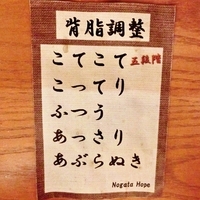 背脂調整
五段階
こてこて
こってり
ふつう
あっさり
あぶらぬき
Nagata Hope